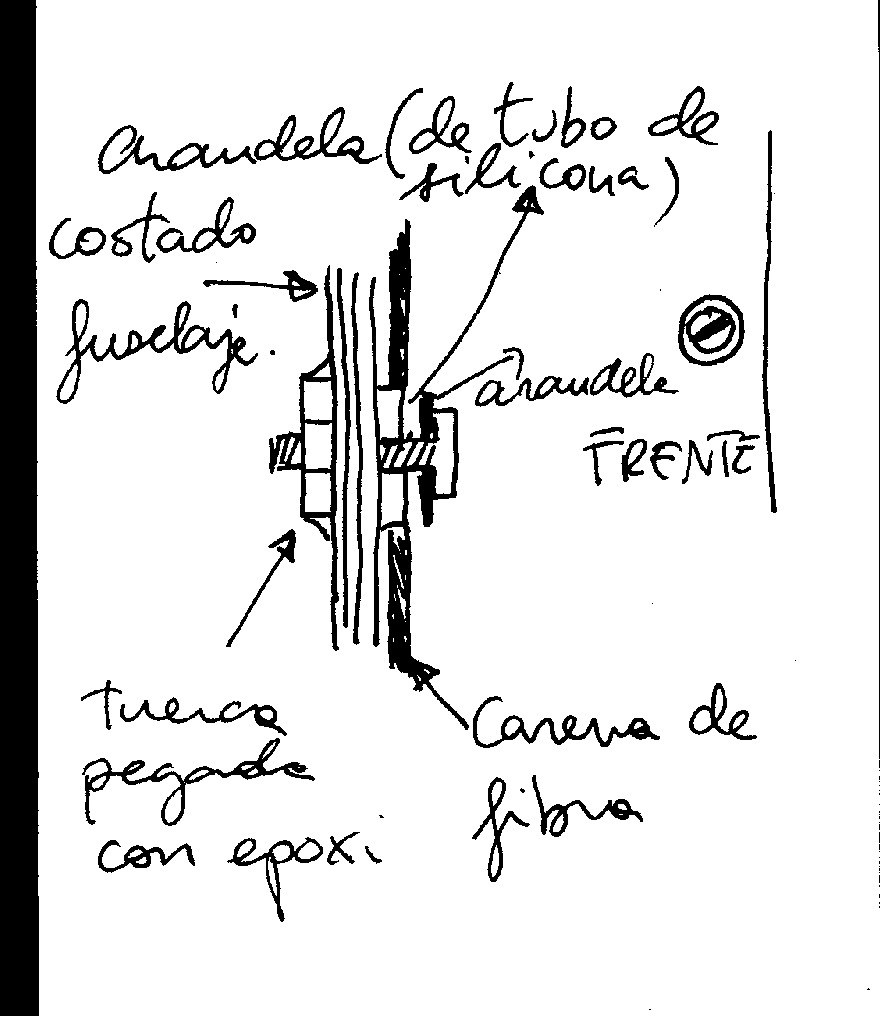 arandela (de tubo de
silicona)
costado
fuselaje.
arandela
FRENTE
tuerca
pegada
con epoxi
Carena de
fibra